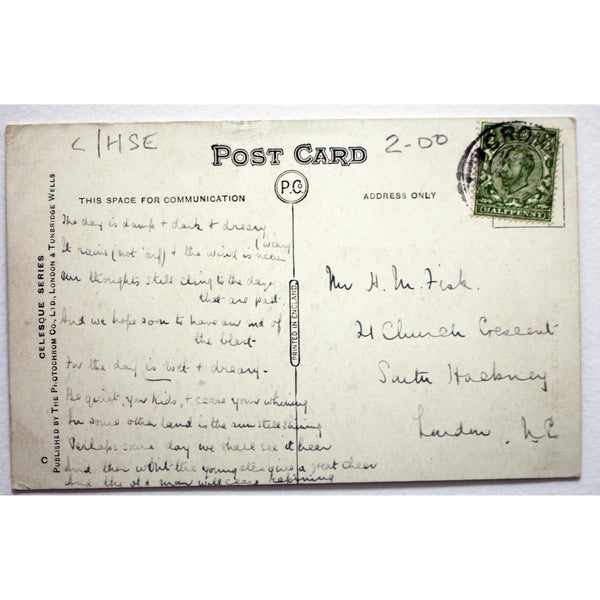 C/HSE
2-00
POST CARD
P.Co
CROM
HALFPENNY
THIS SPACE FOR COMMUNICATION
ADDRESS ONLY
CELESQUE SERIES
PUBLISHED BY THE PHOTOCHROM CO., LTD., LONDON & TUNBRIDGE WELLS
PRINTED IN ENGLAND
The day is damp + dark + dreary
It rains (not 'arf) + the wind is never
(weary
Our thoughts still cling to the days
that are past
And we hope soon to have an end of
the blast
For the day is wet + dreary.
Be quiet, you kids, + cease your whining
In some other land is the sun still shining
Perhaps some day we shall see it here
And then will the youngsters give a great cheer
And the old man will cease repining
Mr H. M. Fisk.
21 Church Crescent
South Hackney
London, NE